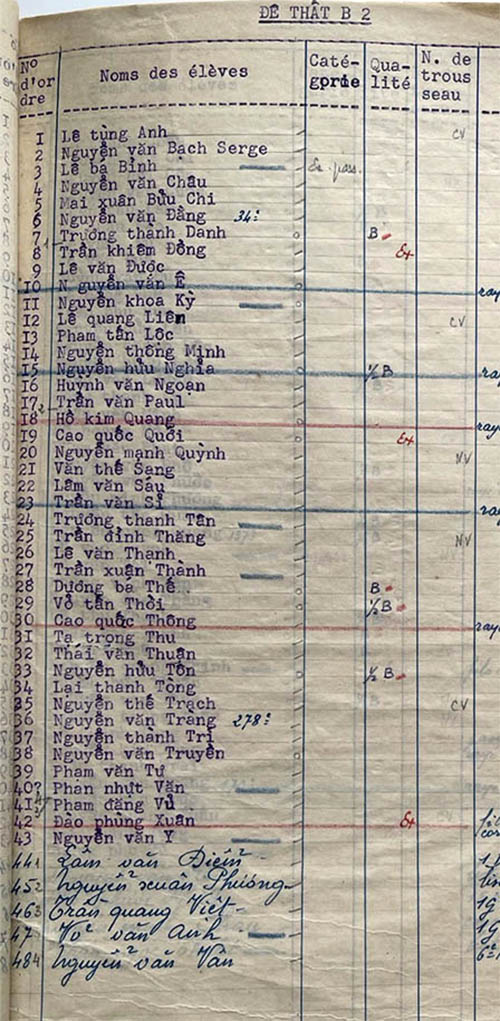 ĐÊ THẤT B 2
N° d'or dre Noms des élèves Caté- gorie Qua- lité N. de trous seau
1 Lê tùng Anh CV
2 Nguyễn văn Bach Serge
3 Lê bá Bỉnh Ex pass.
4 Nguyễn văn Châu
5 Mai xuân Bửu Chi
6 Nguyễn văn Đằng 34:
7 Trương thanh Danh B
8 Trần khiêm Đồng Ex
9 Lê văn Được
10 N guyễn văn Ê ray
11 Nguyễn khoa Kỳ
12 Lê quang Liên CV
13 Phạm tấn Lộc
14 Nguyễn thông Minh
15 Nguyễn hữu Nghĩa ½ B ray
16 Huỳnh văn Ngoạn
17 Trần văn Paul
18 Hồ kim Quang ray
19 Cao quốc Quới Ex
20 Nguyễn mạnh Quỳnh NV
21 Văn thế Sang
22 Lâm văn Sáu
23 Trần văn Sĩ ray
24 Trương thanh Tân
25 Trần đình Thăng NV
26 Lê văn Thạnh
27 Trần xuân Thành
28 Dương bá Thế B
29 Võ tấn Thời ½ B
30 Cao quốc Thông ray
31 Tạ trọng Thu
32 Thái văn Thuận
33 Nguyễn hữu Tôn ½ B
34 Lại thanh Tòng
35 Nguyễn thế Trạch CV
36 Nguyễn văn Trang 278:
37 Nguyễn thanh Trí
38 Nguyễn văn Truyền
39 Phạm văn Tư
40 Phan nhựt Văn
41 Phạm đăng Vủ
42 Đào phùng Xuân Ex
43 Nguyễn văn Y
44 Lâm văn Điền
45 Nguyễn xuân Phương
46 Trần quang Việt
47 Võ văn Anh
48 Nguyễn văn Vân